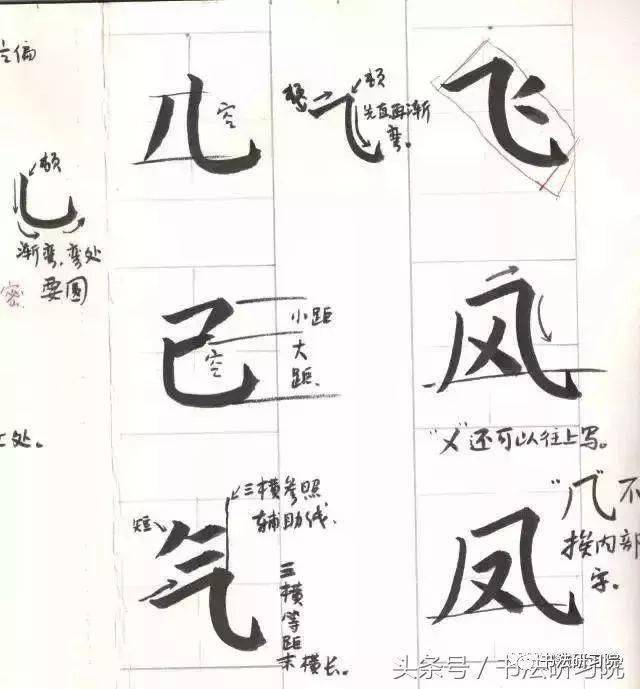 偏
顿
渐弯,弯处
要圆
密
处。
儿
空
顿
先直再渐
弯。
飞
己
空
小距
大
距
风
"㐅"还可以往上写。
气
短
三横参照
辅助线.
三
横
等
距
末横长。
凤
"几"不
挨内部
字。
书法研习院
头条号/书法研习院